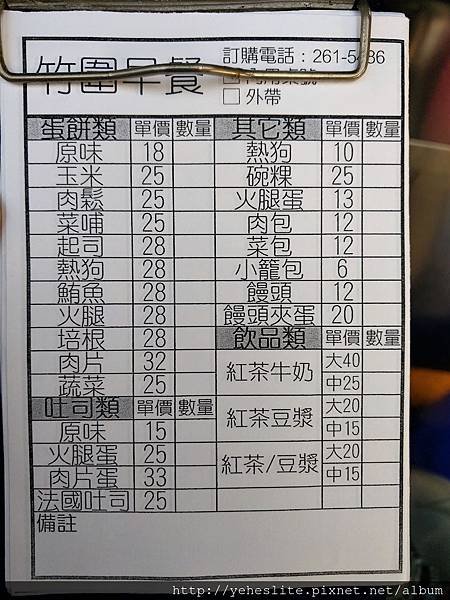 竹圍早餐
訂購電話：261-5486
□內用桌號
□ 外帶
蛋餅類 單價 數量
原味 18
玉米 25
肉鬆 25
菜哺 25
起司 28
熱狗 28
鮪魚 28
火腿 28
培根 28
肉片 32
蔬菜 25
吐司類 單價 數量
原味 15
火腿蛋 25
肉片蛋 33
法國吐司 25
其它類 單價 數量
熱狗 10
碗粿 25
火腿蛋 13
肉包 12
菜包 12
小籠包 6
饅頭 12
饅頭夾蛋 20
飲品類 單價 數量
紅茶牛奶 大40
中25
紅茶豆漿 大20
中15
紅茶/豆漿 大20
中15
備註
http://yeheslite.pixnet.net/album